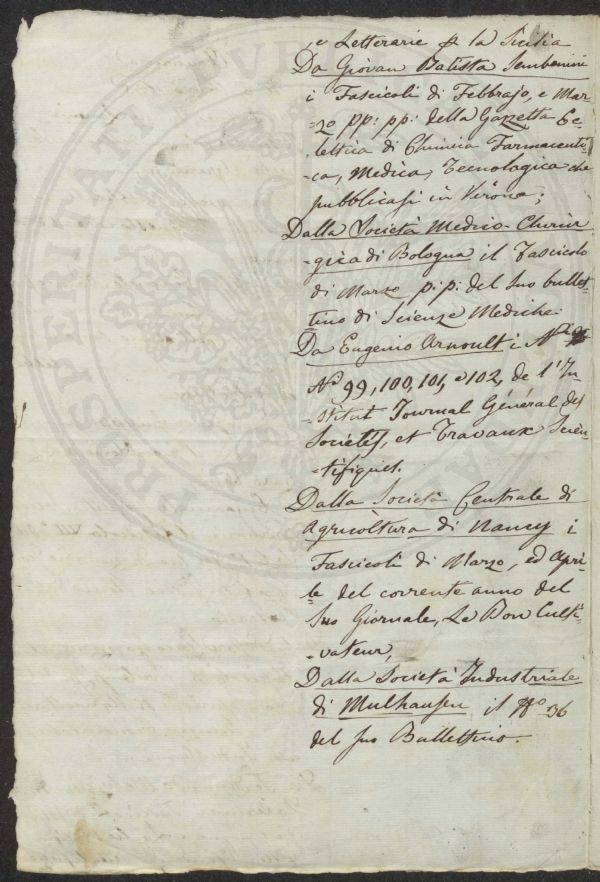 e Letterarie p la Sicilia
Da Giovan Batista Sembenini
i Fascicoli di Febbrajo, e Mar-
-zo pp: pp: della Gazzetta Ec-
lettica di Chimica Farmaceuti-
-ca, Medica, Tecnologica che
pubblicasi in Virona;
Dalla Società Medico-Chirur
-gica di Bologna il Fascicolo
di Marzo p:p: del suo bullet-
tino di Scienze Mediche.
Da Eugenio Arnoult i N.i
N.i 99, 100, 101, e 102, de l'In-
-stitut Journal Général des
Societés, et Travaux Scien-
-tifiques.
Dalla Società Centrale di
Agricoltura di Nancy i
Fascicoli di Marzo, ed Apri-
le del corrente anno del
suo Giornale, Le Bon Culti-
-vateur,
Dalla Società Industriale
di Mulhausen il N.o 36
del suo Bullettino.
PROSPERITATI